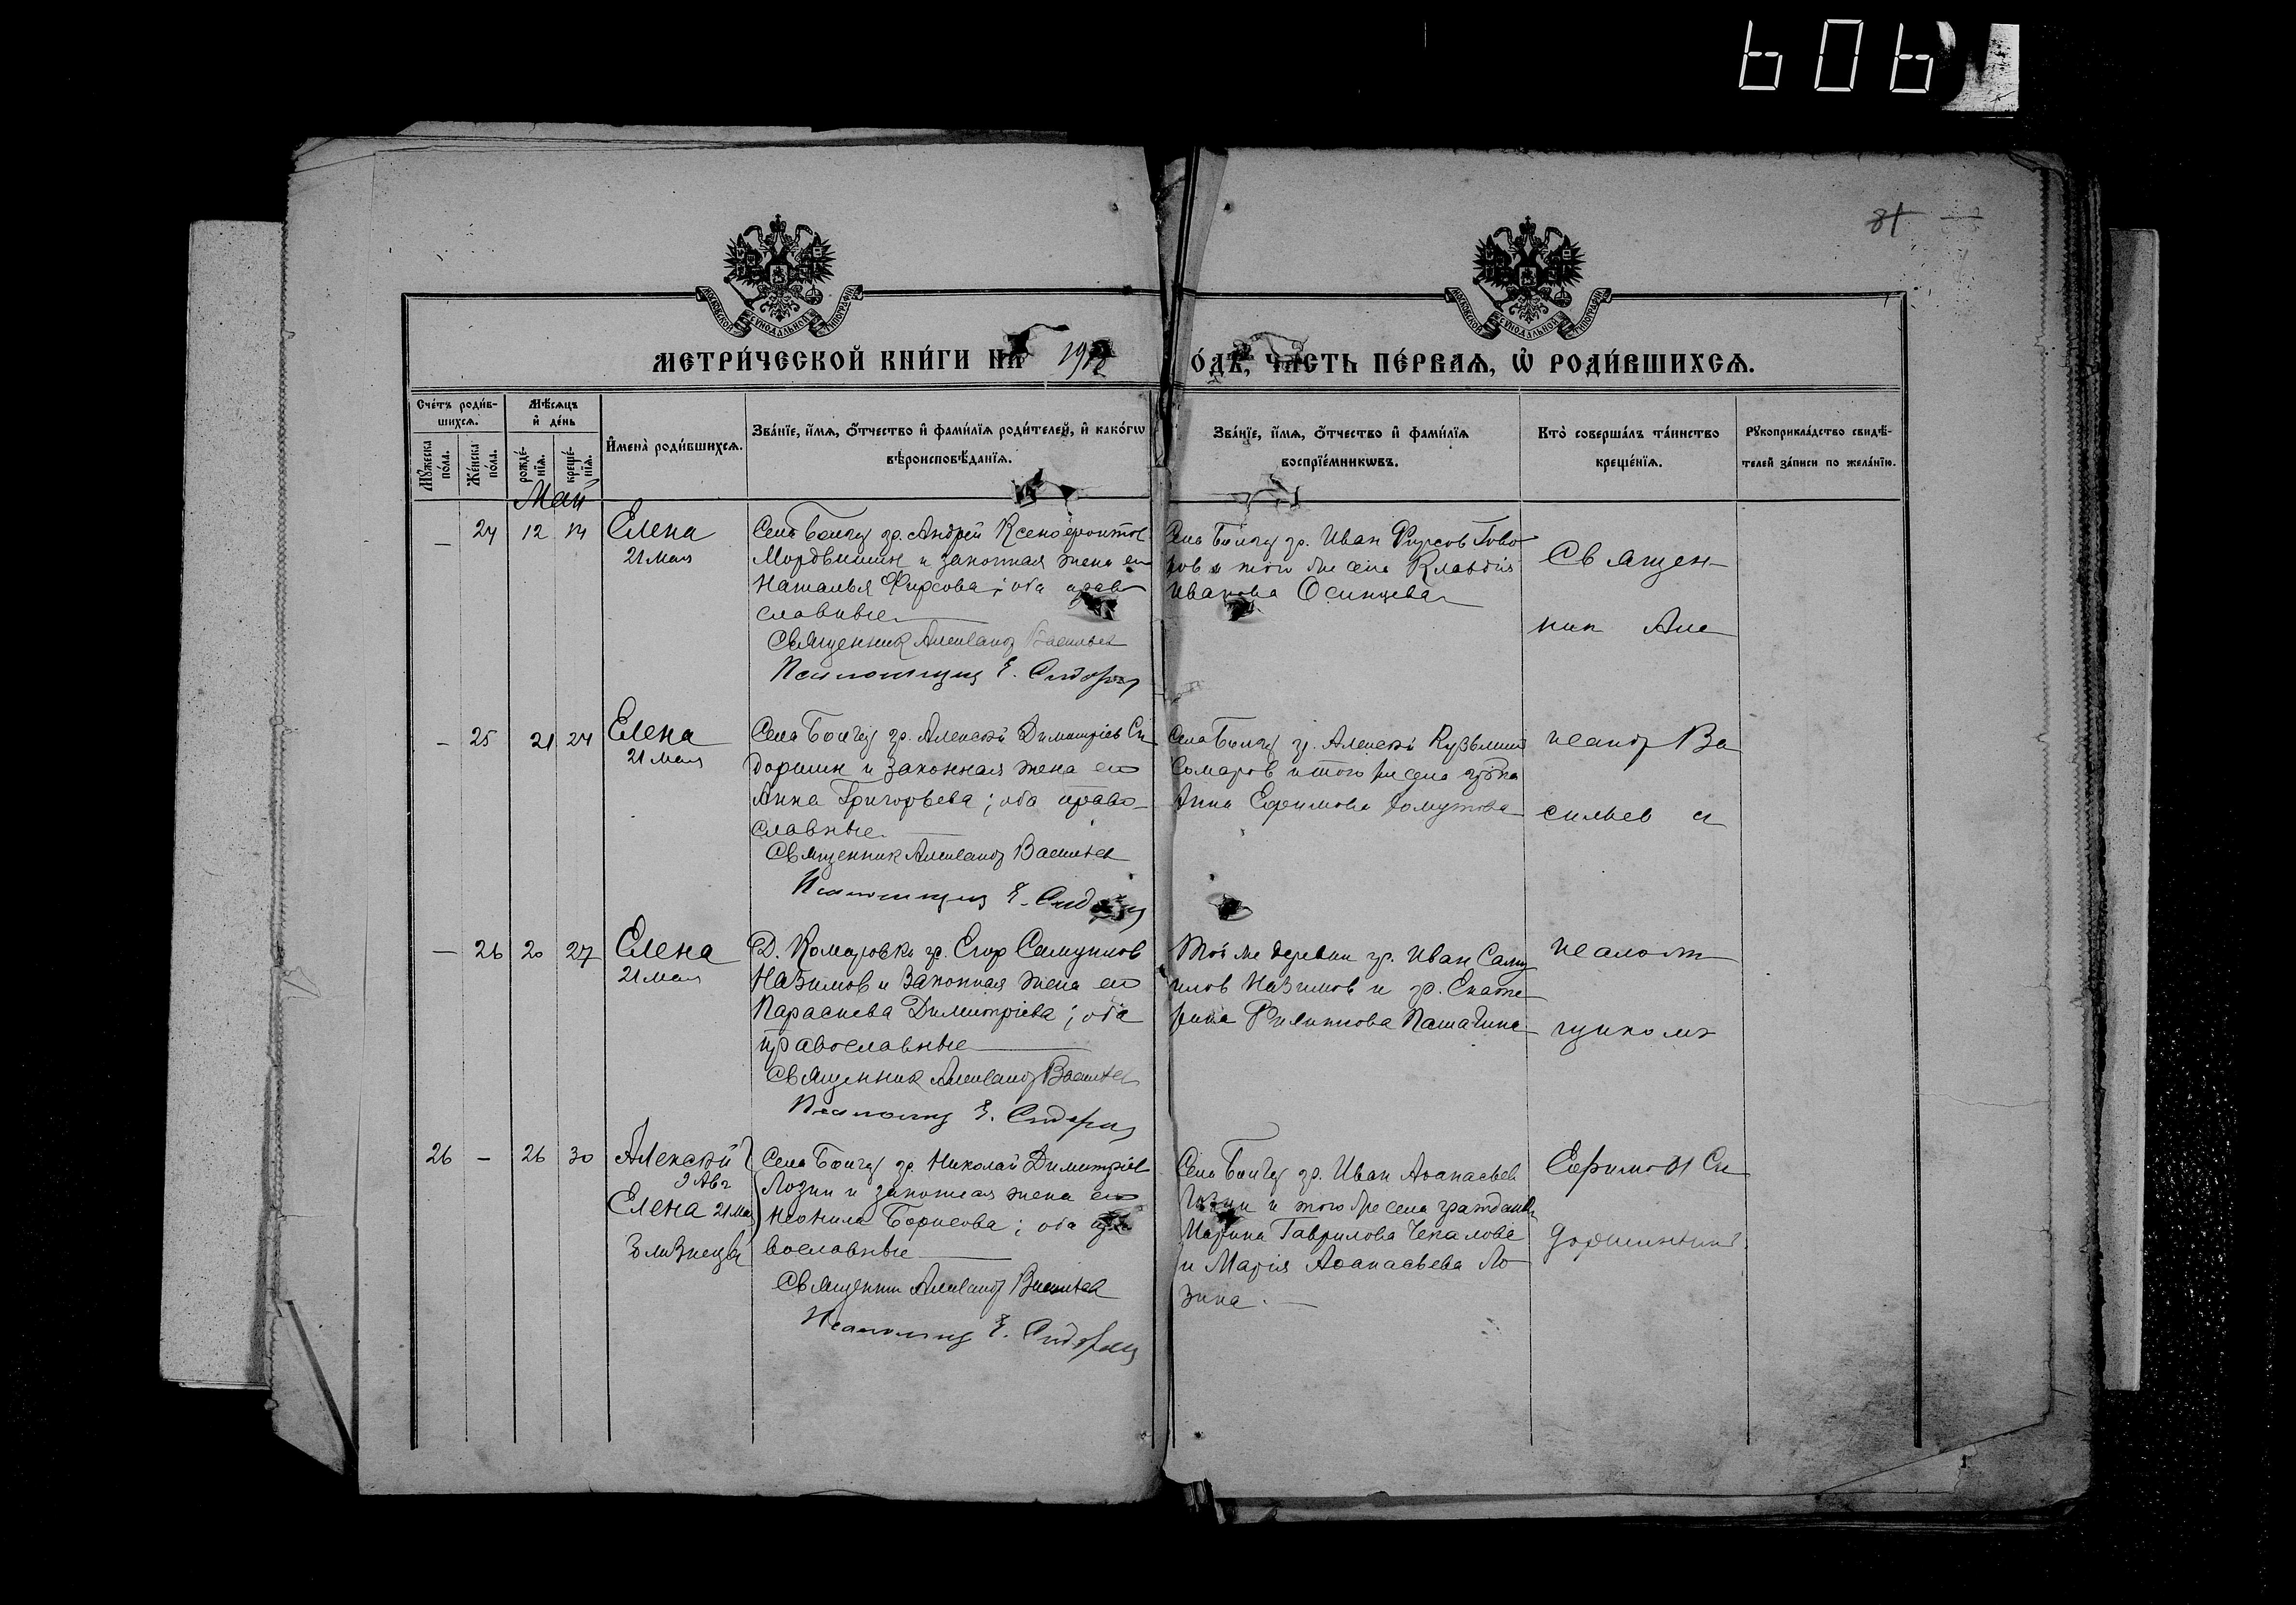 31
МОСКОВСКОЙ СѴНОДАЛЬНОЙ ТИПОГРАФІИ
МОСКОВСКОЙ СѴНОДАЛЬНОЙ ТИПОГРАФІИ
МЕТРИ́ЧЕСКОЙ КНИ́ГИ НА 191
О́ДЪ, ЧА́СТЬ ПЕ́РВАѦ, Ѡ҆ РОДИ́ВШИХСѦ.
Сче́тъ роди́в-
шихсѧ.
Мꙋ́жеска
по́ла.
Же́нска
по́ла.
Мѣ́сѧцъ
и҆ де́нь
рожде́-
нїѧ.
креще́-
нїѧ.
И҆мена̀ роди́вшихсѧ.
Зва́нїе, и҆́мѧ, ѻ҆́тчество и҆ фами́лїѧ роди́телей, и҆ како́гѡ
вѣроисповѣ́данїѧ.
Зва́нїе, и҆́мѧ, ѻ҆́тчество и҆ фами́лїѧ
воспрїе́мникѡвъ.
Кто̀ соверша́лъ та́инство
креще́нїѧ.
Рꙋкоприкла́дство свидѣ́-
телей за́писи по жела́нїю.
Май
— 24 12 14 Елена
21 мая
Села гр. Андрей Ксенофонтов
Мордвишин и законная жена его
Наталья Фирсова; оба право
славные
Священник Александр Васильев
Псаломщик Е. Сидоршин
Села гр. Иван Фирсов Гово
ров и того же села Клавдия
Иванова Осинцева
Священ-
ник Але
— 25 21 24 Елена
21 мая
Села гр. Алексей Димитріев Си
доршин и законная жена его
Анна Григорьева; оба право-
славные
Священник Александр Васильев
Псаломщик Е. Сидоршин
Села гр. Алексей Кузьмин
Сомаров и того же села гр-ка
Анна Ефимова
ксандр Ва
сильев с
— 26 20 27 Елена
21 мая
Д. Комаровки гр. Егор Самуилов
Назимов и законная жена его
Параскева Димитріева; оба
православные
Священник Александр Васильев
Псаломщик Е. Сидоршин
Той же деревни гр. Иван Саму
илов Назимов и гр. Екате
рина Филиппова Пашагина
псалом
щиком
26 — 26 30 Алексей
9 Авг
Елена 21 мая
близнецы
Села гр. Николай Димитріев
Лозин и законная жена его
Неонила Борисова; оба пра
вославные
Священник Александр Васильев
Псаломщик Е. Сидоршин
Села гр. Иван Афанасьев
Лозин и того же села гражданка
Марина Гаврилова Чекалова
и Марія Афанасьева Ло
зина.
Ефимом Си
доршиным.